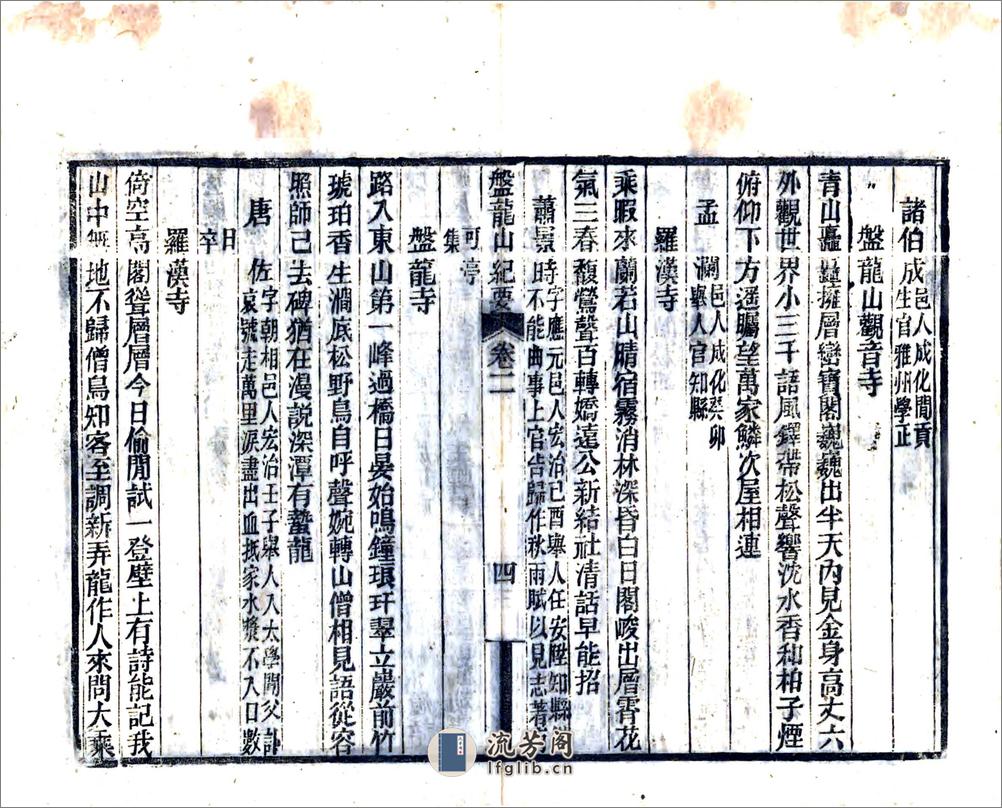 諸伯成生邑人成化間貢
官雅州學正
盤龍山觀音寺
青山矗矗擁層巒寶閣巍巍出半天內見金身高丈六
外觀世界小三千語風鐸帶松聲響沈水香和柏子煙
俯仰下方遥矚望萬家鱗次屋相連
孟瀾邑人成化癸卯
舉人官知縣
羅漢寺
乘暇來蘭若山晴宿霧消林深昏白日閣峻出層霄花
氣三春馥鶯聲百轉嬌遠公新結社清話早能招
蕭景時字應元邑人宏治己酉舉人任安陞知縣
不能曲事上官告歸作秋雨賦以見志著
盤龍山紀要
卷二
四
可亭
集
盤龍寺
路入東山第一峰過橋日晏始鳴鐘琅玕翠立巖前竹
琥珀香生澗底松野鳥自呼聲婉轉山僧相見語從容
照師已去碑猶在漫說深潭有蟄龍
唐佐字朝相邑人宏治壬子舉人入太學聞父訃
哀號走萬里淚盡出血抵家水漿不入口數
日
卒
羅漢寺
倚空高閣聳層層今日偷閒試一登壁上有詩能記我
山中無地不歸僧鳥知客至調新弄龍作人來問大乘
流芳阁
lfglib.cn